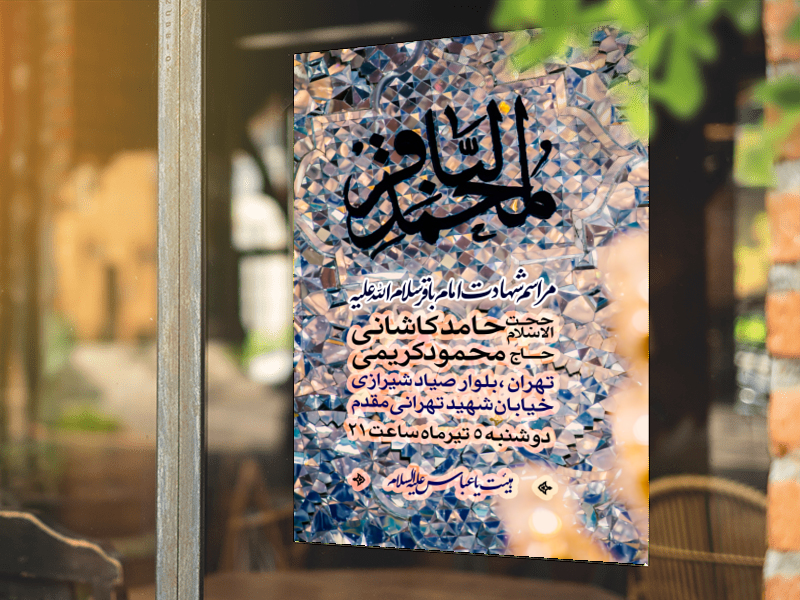 محمد الباقر
مراسم شهادت امام باقر سلام الله علیه
حجت الاسلام حامد کاشانی
حاج محمود کریمی
تهران ، بلوار صیاد شیرازی
خیابان شهید تهرانی مقدم
دوشنبه ۵ تیر ماه ساعت ۲۱
هیئت یا عباس علیه السلام